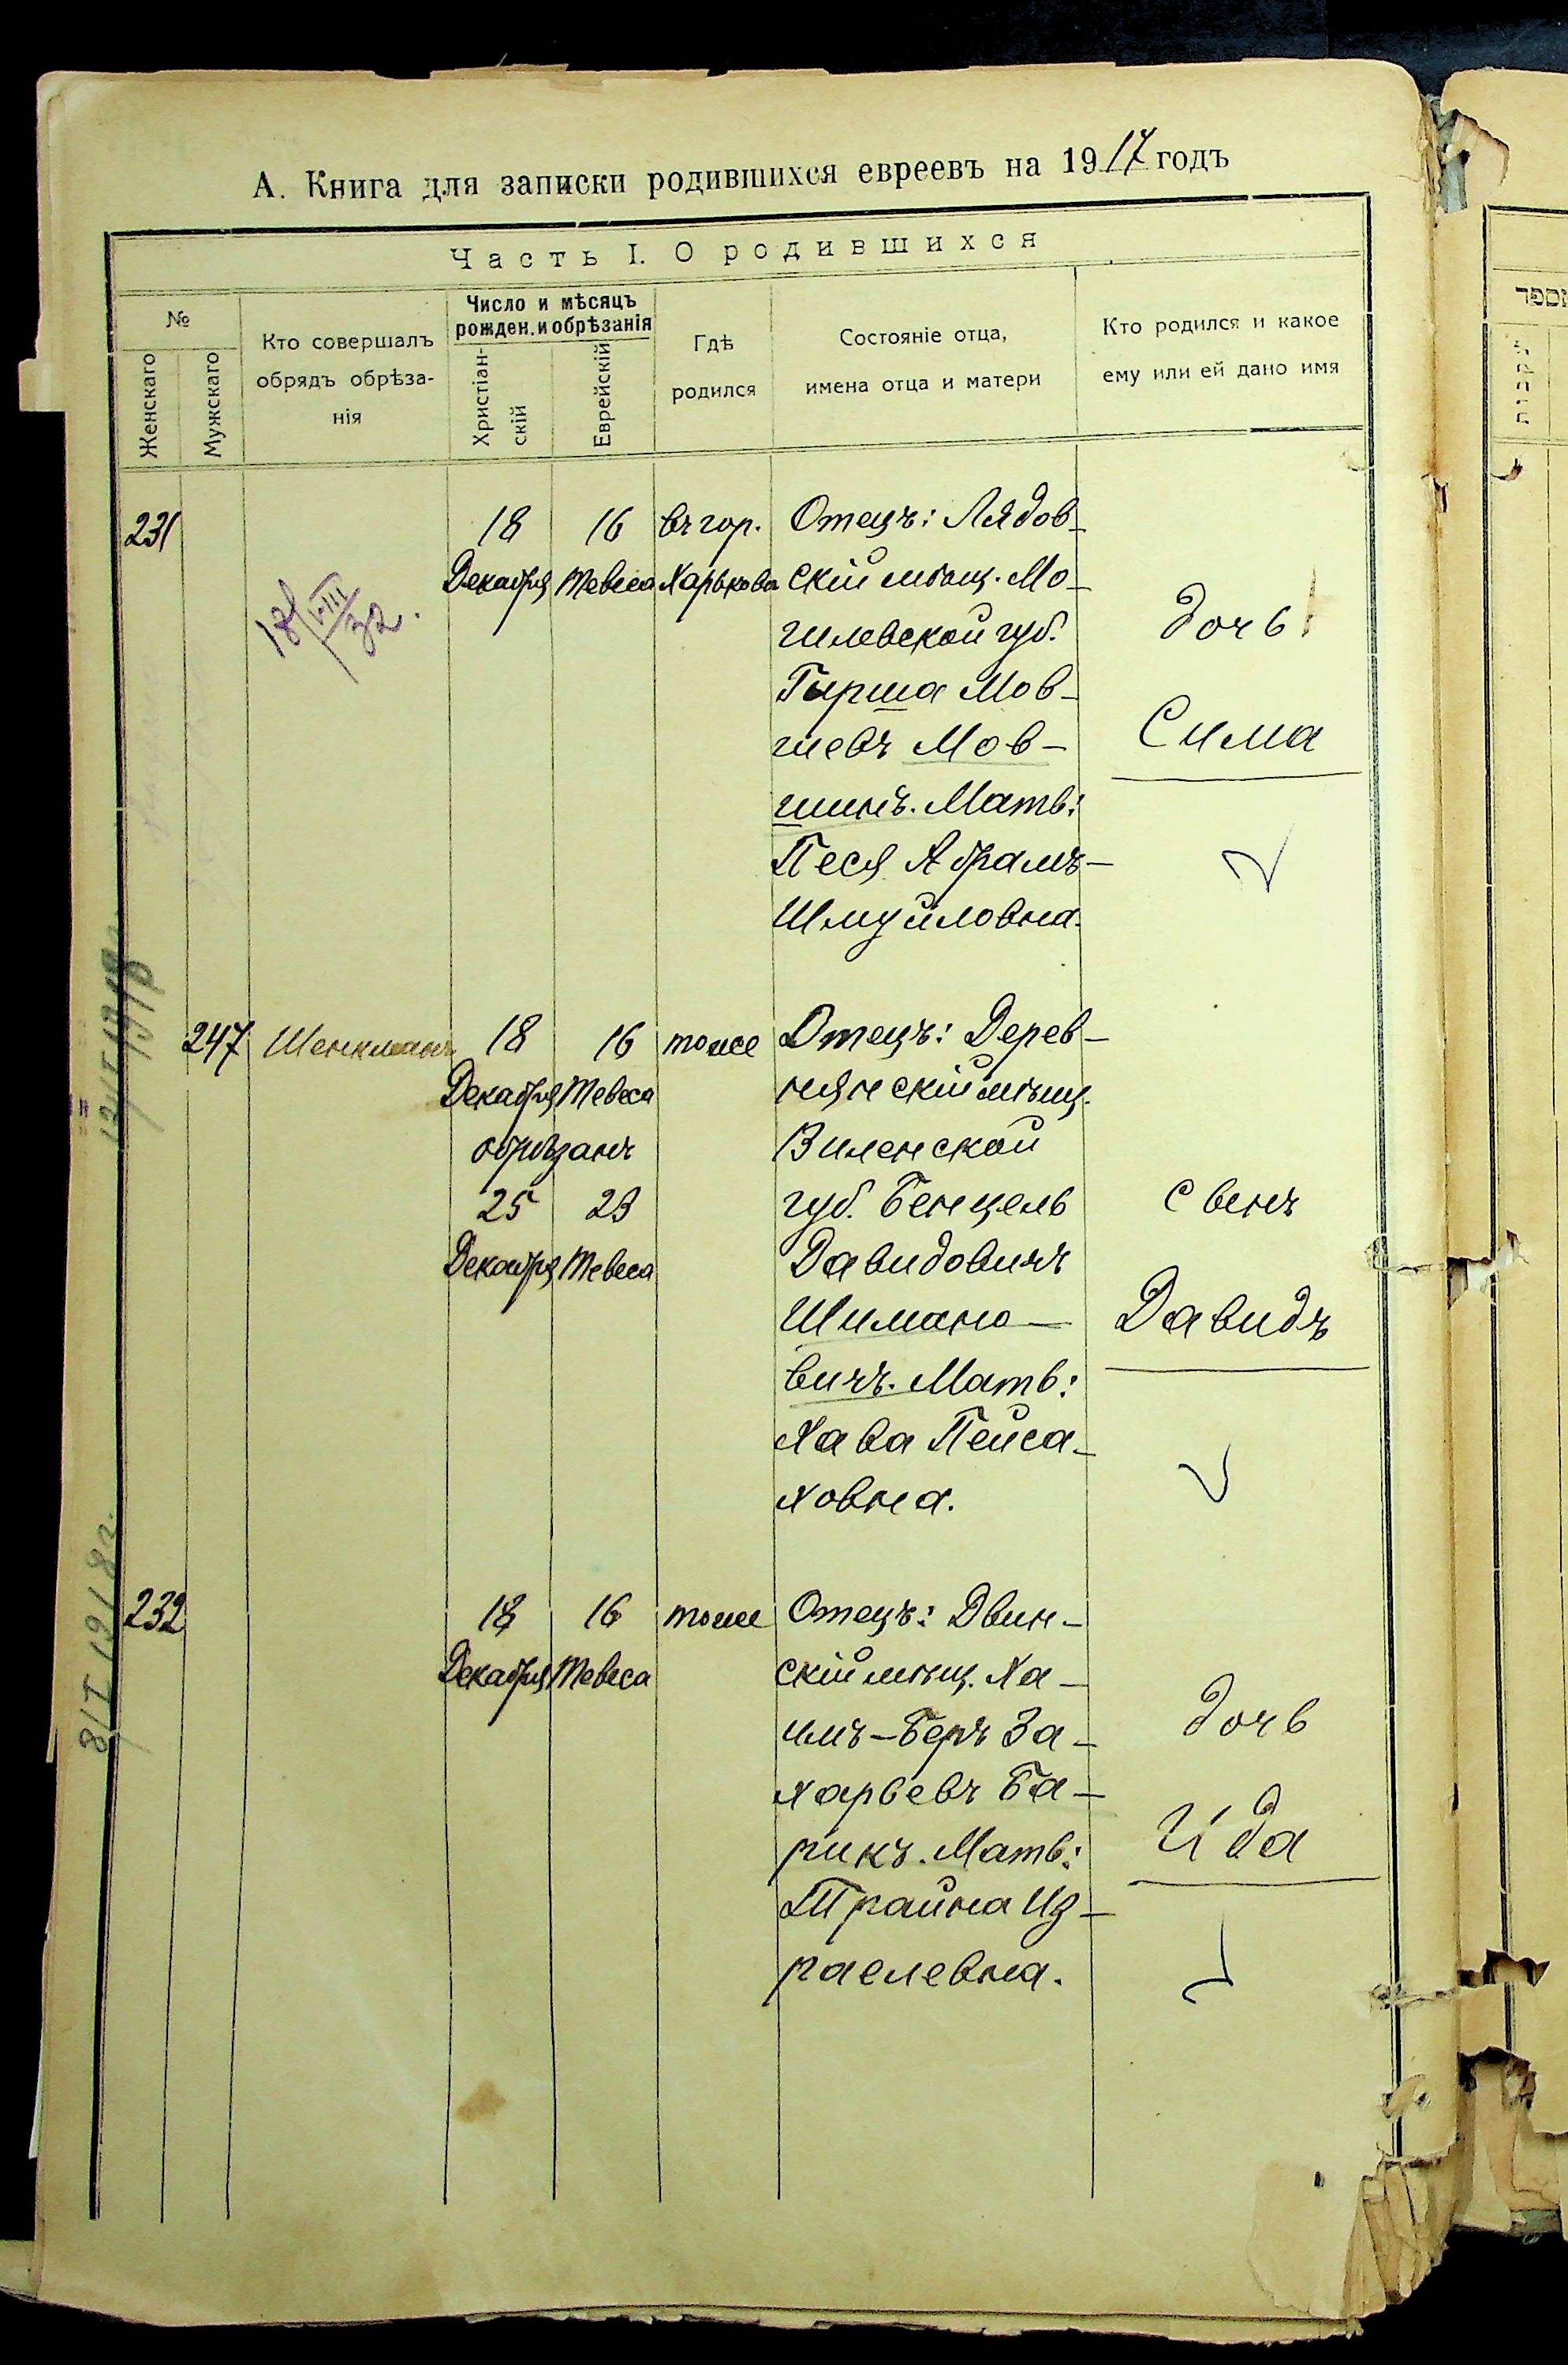 А. Книга для записки родившихся евреевъ на 1917 годъ
Часть I. О родившихся
№
Женскаго
Мужскаго
Кто совершалъ
обрядъ обрѣза-
нія
Число и мѣсяцъ
рожден. и обрѣзанія
Христіан-
скій
Еврейскій
Гдѣ
родился
Состояніе отца,
имена отца и матери
Кто родился и какое
ему или ей дано имя
231
18
Декабря
16
Тевеса
въ гор.
Харькова
Отецъ: Лядов-
скій мѣщ. Мо-
гилевской губ.
Гирша Мов-
шевъ Мов-
шинъ. Мать:
Песя Абрамъ-
Шмуйловна.
дочь
Сима
18/VIII 32.
247
Шенкманъ
18
Декабря
16
Тевеса
обрѣзанъ
25
Декабря
23
Тевеса
тоже
Отецъ: Дерев-
нянскій мѣщ.
Виленской
губ. Бенцель
Давидовичъ
Шимано-
вичъ. Мать:
Хава Пейса-
ховна.
свенъ
Давидъ
232
18
Декабря
16
Тевеса
тоже
Отецъ: Двин-
скій мѣщ. Ха-
имъ-Беръ За-
харьевъ Ба-
рикъ. Мать:
Трайна Из-
раелевна.
дочь
Ида
8/I 1918г.